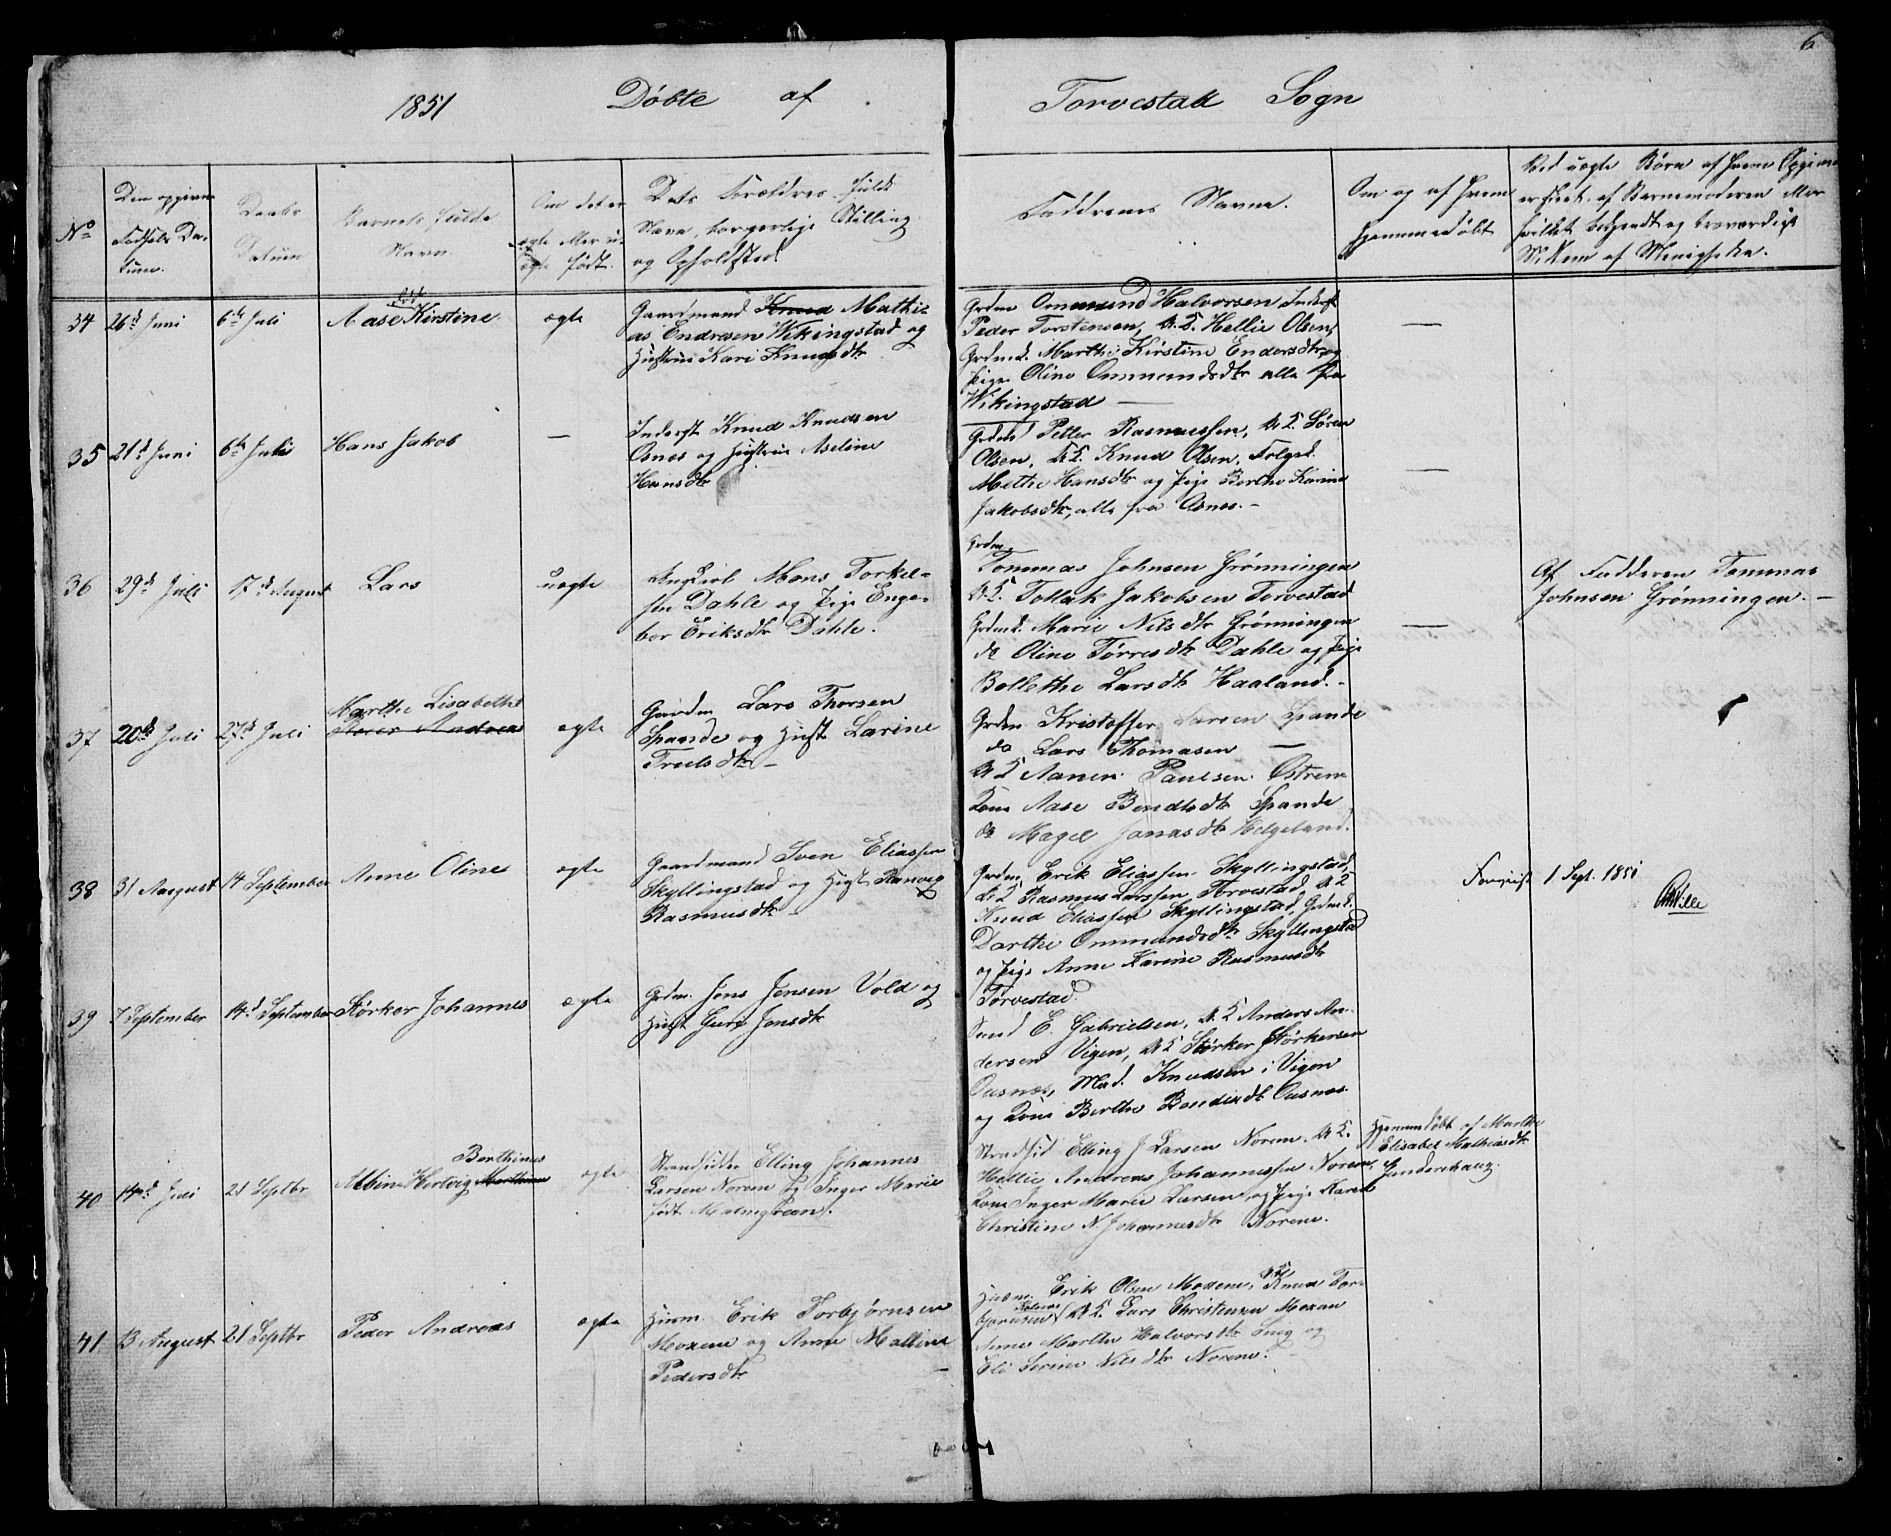 6
1851 Döbte af Torvestad Sogn
No
Den opgivne
Fødsels Da-
tum.
Daabs
Datum
Barnets fulde
Navn.
Om det er
ægte eller u-
ægte født.
Dets Forældres fulde
Navn, borgerlige Stilling
og Opholdsted.
Faddrenes Navne.
Om og af hvem
hjemmedøbt
Ved uægte Børn af hvem
af Barnemoderen eller
hvilket bekjendt og troværdigt
Vidne af Menigheden.
34 26d Juni 6te Juli Aase Kirstine ægte
Gaardmand Knud Mathi-
as Endresen Wikingstad og
Hustrue Kari Knudsdtr
Grdm Ommund Halvorsen Inderst
Peder Torstensen, U.K. Hellie Olsen,
Grdmd. Marthe Kirstine Endersdtr og
Pige Oline Ommundsdtr alle fra
Wikingstad —
—
35 21d Juni 6te Juli Hans Jakob —
Inderst Knud Knudsen
Osnes og Hustrue Aseline
Hansdtr
Grdm Petter Rasmussen, U.K. Sören
Olsen, U.K. Knud Olsen, Folged.
Mette Hansdtr og Pige Berthe Karine
Jakobsdtr, alle fra Osnes. –
—
36 29de Juli 17de August Lars uægte
Ungkarl Mons Torkel-
sen Dahle og Pige Enge-
bor Eriksdtr Dahle.
Grdm.
Tommas Johnsen Grønningen
U.K. Tollak Jakobsen Torvestad
Grdmd. Marie Nilsdtr Grønningen
do Oline Tørresdtr Dahle og Pige
Bollethe Larsdtr Haaland. –
—
Af Fadderen Tommas
Johnsen Grønningen. –
37 20de Juli 27de Juli
Marthe Lisabethe
Andrea
ægte
Gaardm Lars Thorsen
Spande og Hust Larine
Truelsdtr –
Grdm. Kristoffer Larsen Spande
do Lars Thomasen —
U.K Aanen Paulsen Østrem
Kone Aase Bendtsdtr Spande
do Magel Jonasdtr Helgeland.
38 31 August 14 September Anne Oline ægte
Gaardmand Sven Eliassen
Skyllingstad og Hust Ranveg
Rasmusdtr –
Grdm. Erik Eliassen Skyllingstad,
U.K Rasmus Larssen Torvestad, U.K
Knud Eliassen Skyllingstad, Grdmd.
Dorthe Ommundsdtr Skyllingstad
og Pige Anne Karine Rasmusdtr
Torvestad.
1 Sept. 1851
39 7 September 14d September Størker Johannes ægte
Grdm. Jens Jensen Vold og
Hust Guri Jonsdtr
E. Gabrielsen, U.K Anders An-
dersen Vigen, U.K Størker Størkersen
Ousnæs, Mad. Knudsen i Vigen
og Kone Berthe Bendixdtr Ousnæs.
40 14d Juli 21 Septbr
Berthinus
Albin Hertvig
ægte
Strandsidder Elling Johannes
Larsen Norem og Inger Marie
født Malmgreen.
Strandsid Elling J Larsen Norem. U.K.
Hellie Andreas Johannessen Norem,
Kone Inger Marie Larsen, og Pige Karen
Christine N. Johannesdtr Norem.
Hjemmedøbt af Marthe
Elisabet Mathiasdtr
41 13 August 21 Septbr Peder Andreas ægte
Husm. Erik Torbjørnsen
Moxem og Anne Malline
Pedersdtr —
Husm. Erik Olsen Moxem, U.K. Knud Tor-
U.K. Lars Christensen Moxem
Anne Marthe Halvorsdtr og
Eli Serine Nilsdtr Norem.